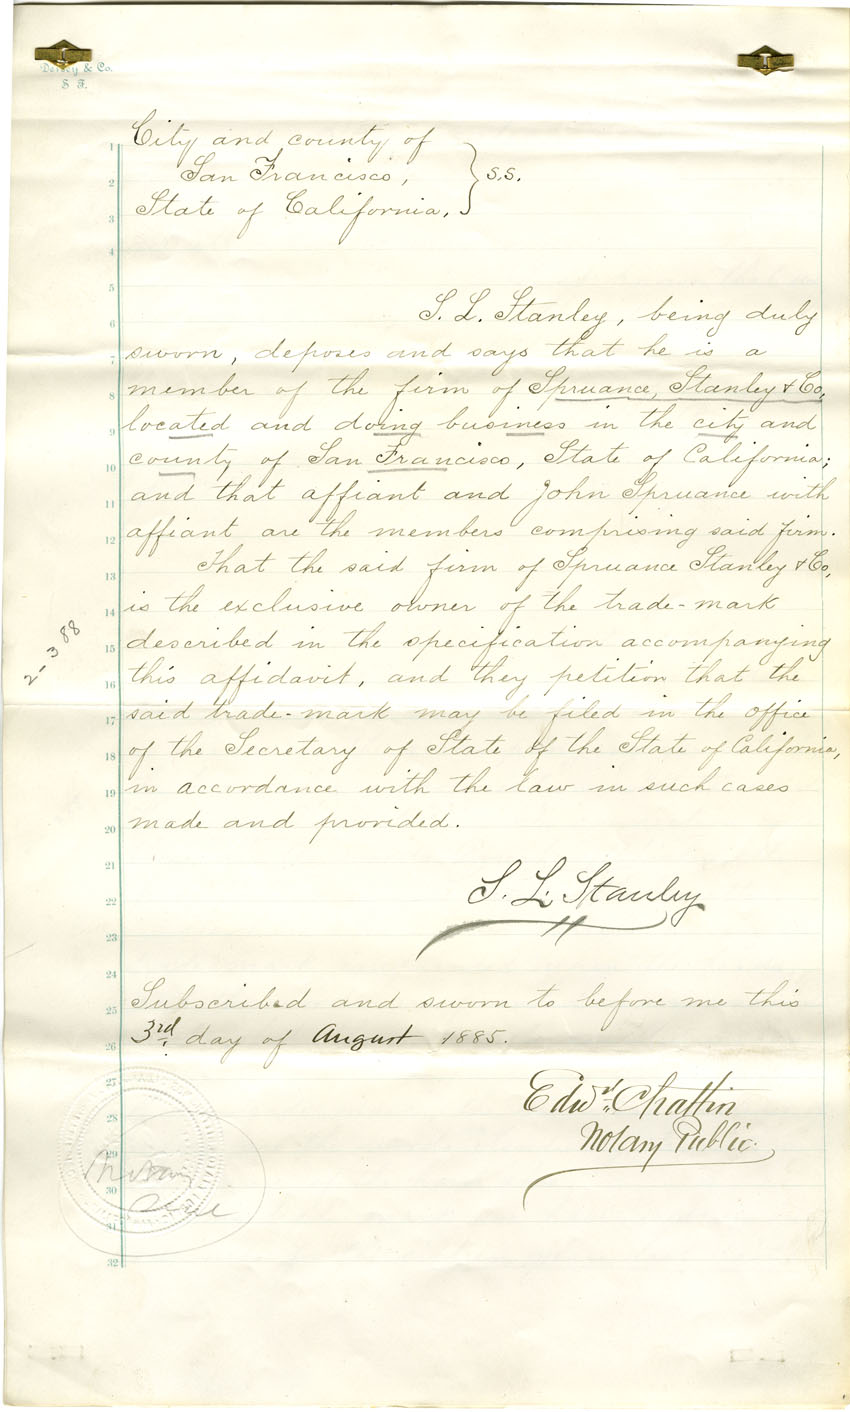 & Co.
S F.
City and county of
San Francisco, } s.s.
State of California.
S. L. Stanley, being duly
sworn, deposes and says that he is a
member of the firm of Spruance, Stanley & Co,
located and doing business in the city and
county of San Francisco, State of California;
and that affiant and John Spruance with
affiant are the members comprising said firm.
That the said firm of Spruance Stanley & Co,
is the exclusive owner of the trade-mark
described in the specification accompanying
this affidavit, and they petition that the
said trade-mark may be filed in the office
of the Secretary of State of the State of California,
in accordance with the law in such cases
made and provided.
S. L. Stanley
Subscribed and sworn to before me this
3rd day of August 1885.
Edwd. Chattin
Notary Public.
1
2
3
4
5
6
7
8
9
10
11
12
13
14
15
16
17
18
19
20
21
22
23
24
25
26
27
28
29
30
31
32
2-388
Seal